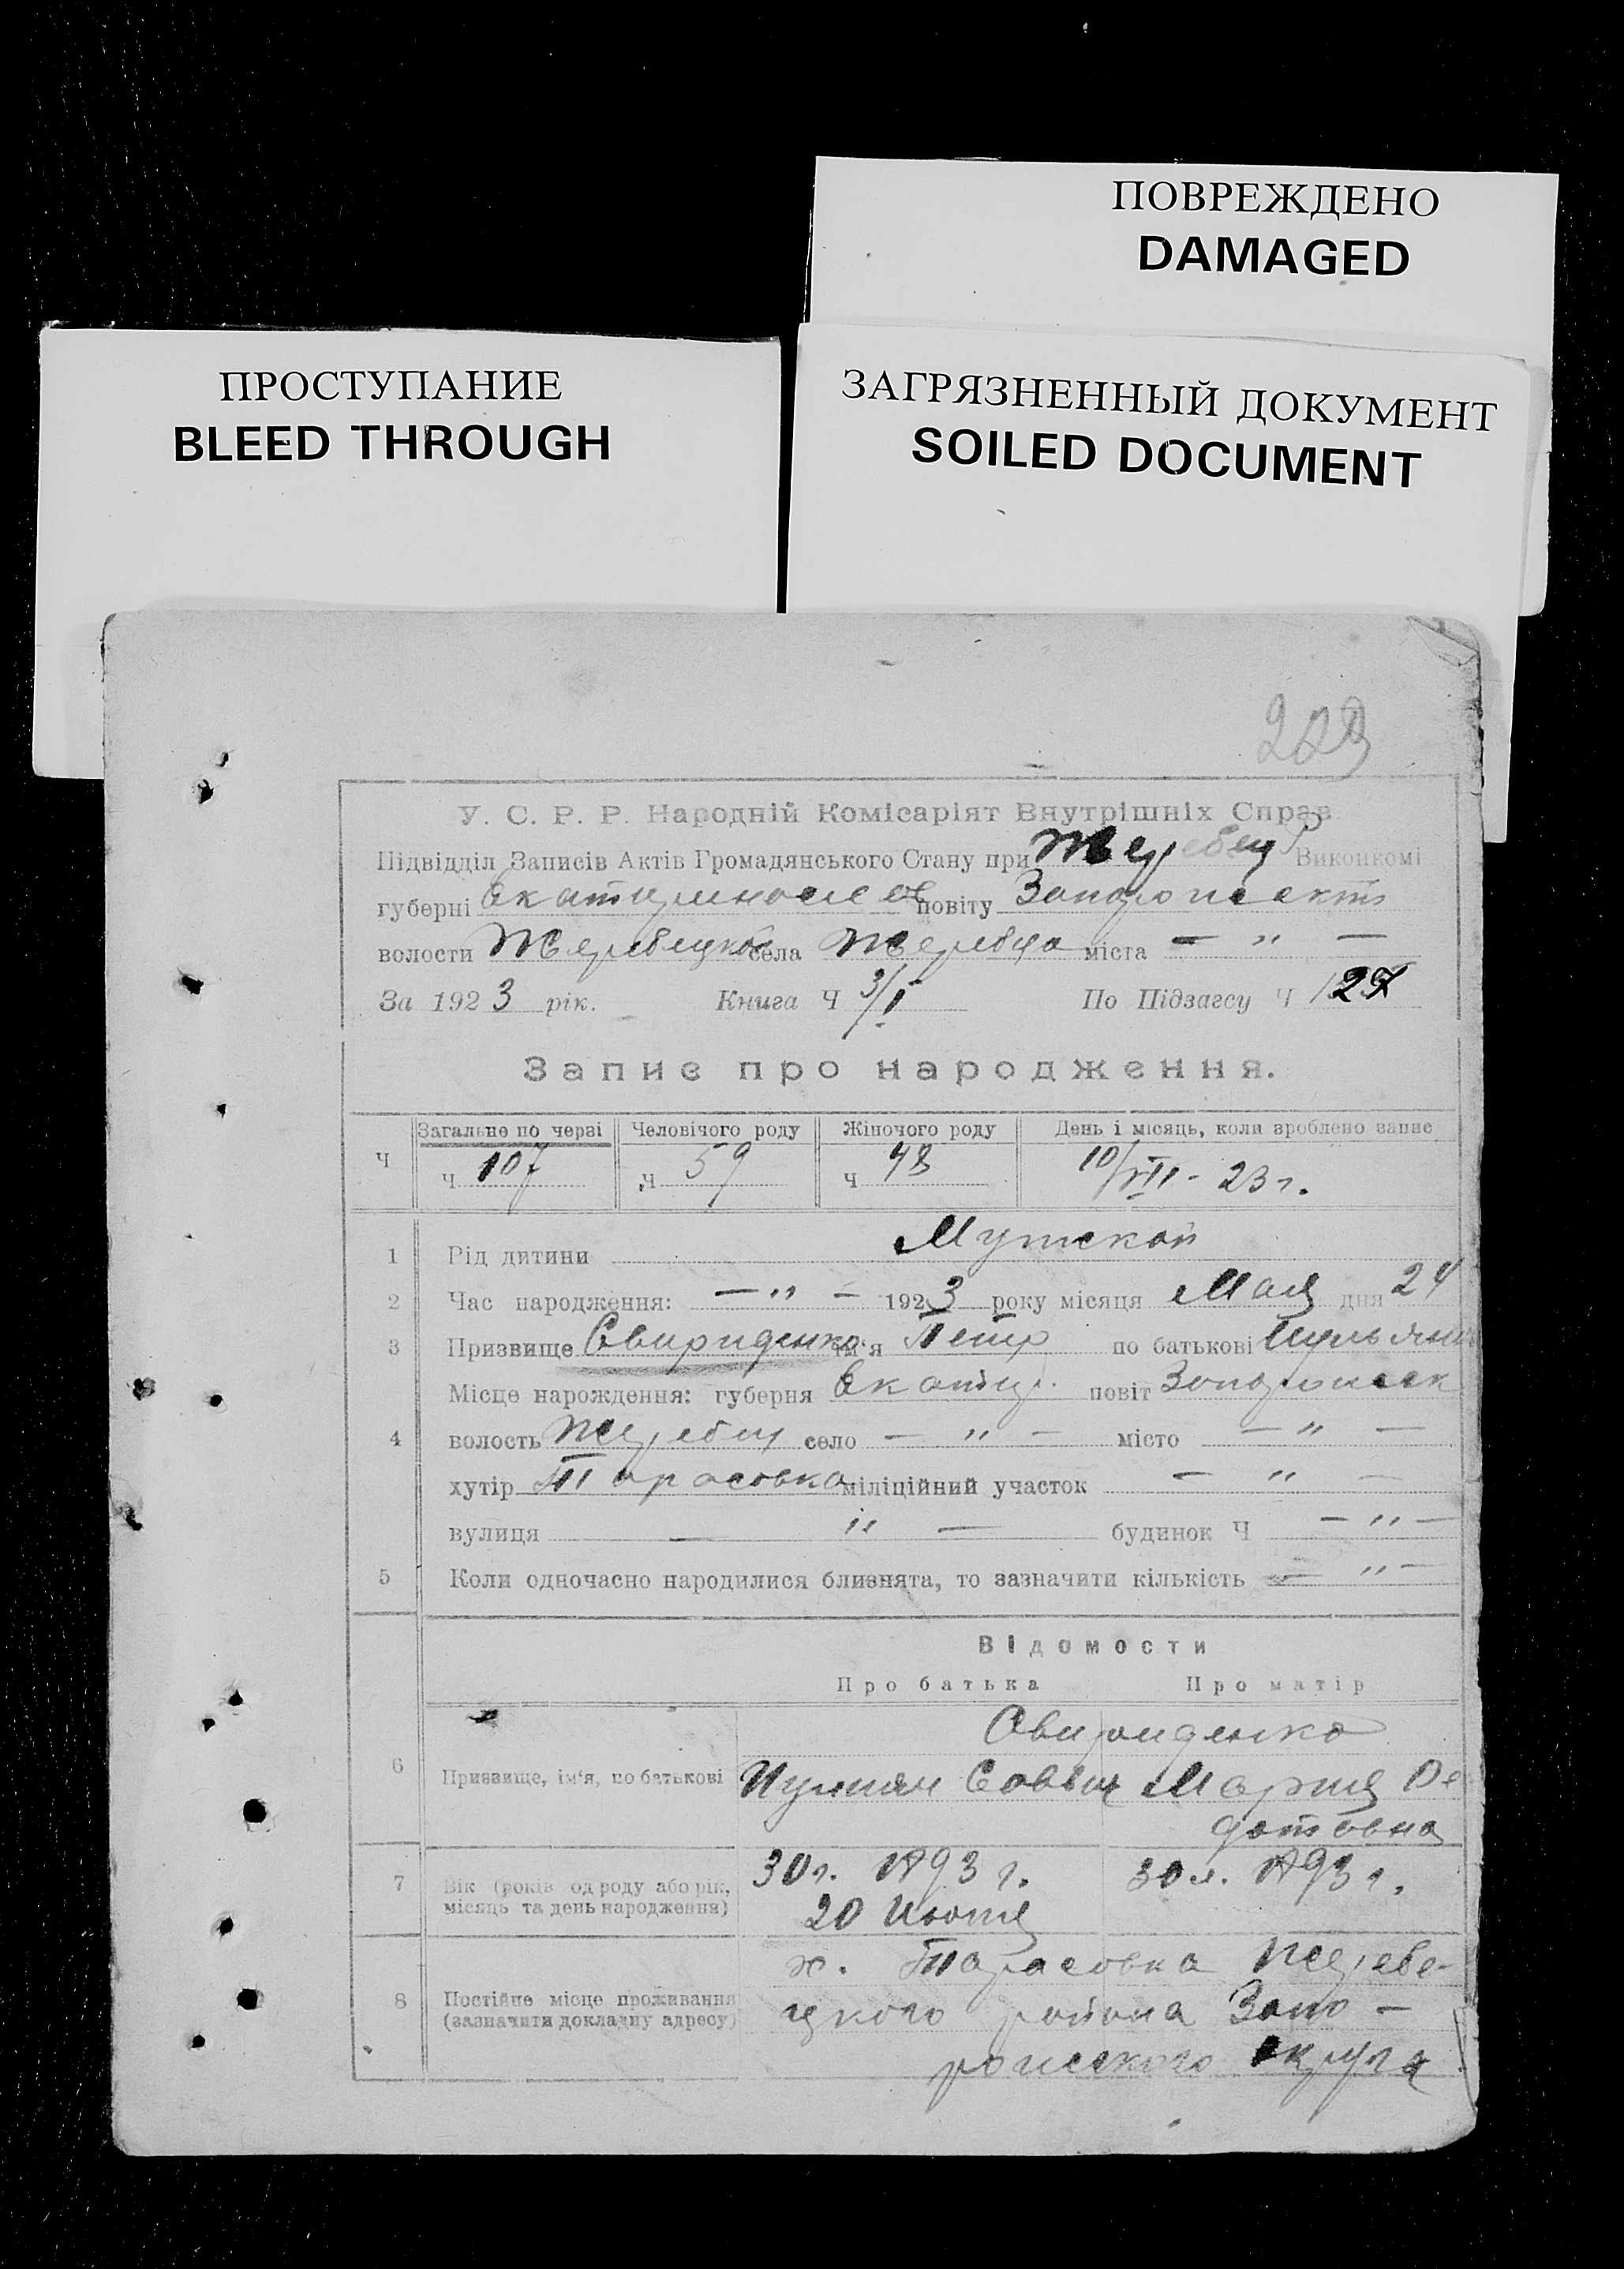 ПОВРЕЖДЕНО
DAMAGED
ПРОСТУПАНИЕ
BLEED THROUGH
ЗАГРЯЗНЕННЫЙ ДОКУМЕНТ
SOILED DOCUMENT
У. С. Р. Р. Народній Комісаріят Внутрішніх Справ
Підвідділ Записів Актів Громадянського Стану при Жеребец Р Виконкомі
губерні Екатеринослав повіту Запорожск
волости Жеребецкой села Жеребца міста — " —
За 1923 рік. Книга Ч 3/I По Підзагсу Ч 127
Запис про народження.
Загальне по черзі Человічого роду Жіночого роду День і місяць, коли зроблено запис
Ч ч 107 ч 59 ч 48 10/VII - 23 г.
1 Рід дитини Мужской
2 Час народження: — " — 1923 року місяця Мая дня 24
3 Призвище Свириденко ім'я Петр по батькові
Місце нарождення: губерня Екатер. повіт Запорожск
4 волость Жеребец село — " — місто — " —
хутір Тарасовка міліційний участок — " —
вулиця — " — будинок Ч — " —
5 Коли одночасно народилися близнята, то зазначити кількість — " —
Відомости
Про батька Про матір
Свириденко
6 Призвище, ім'я, по батькові Иулиян Саввич Мария Фе
дотовна
7 Вік (років од роду або рік, місяць та день народження) 30 г. 1893 г. 30 л. 1893 г.
20 Июня
х. Тарасовка Жеребе-
8 Постійне місце проживання (зазначити докладну адресу) цкого района Запо-
рожского округа